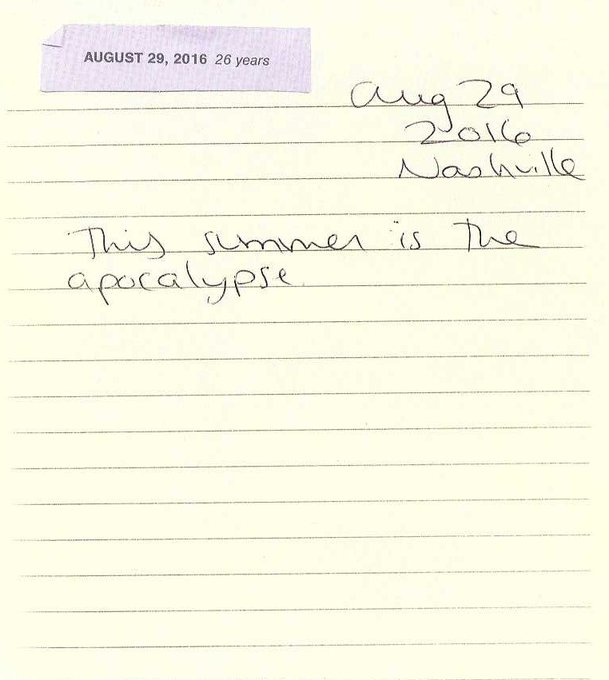 AUGUST 29, 2016 26 years
Aug 29
2016
Nashville
This summer is the
apocalypse.